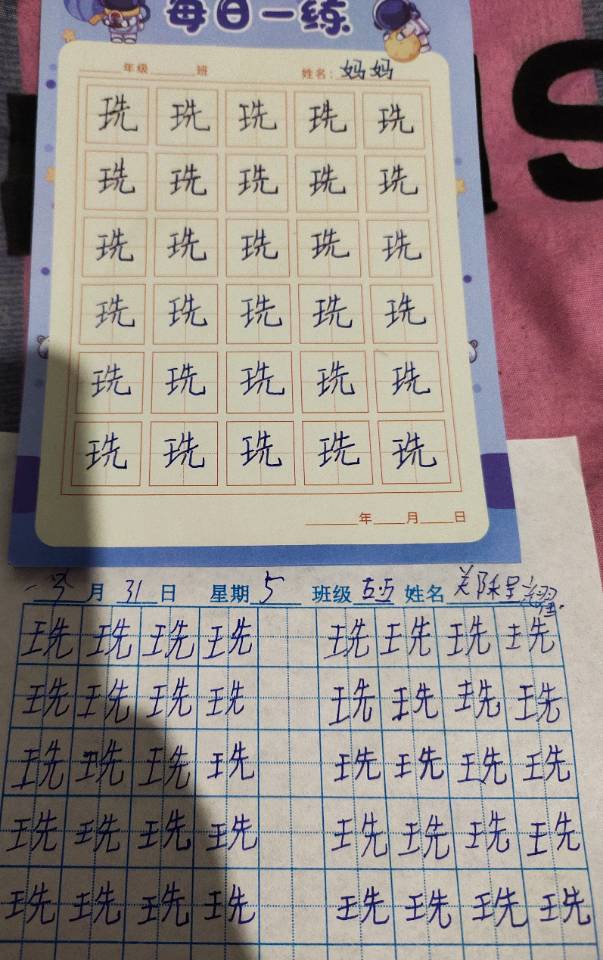 每日一练
年级 班 姓名：妈妈
珗 珗 珗 珗 珗
珗 珗 珗 珗 珗
珗 珗 珗 珗 珗
珗 珗 珗 珗 珗
珗 珗 珗 珗 珗
珗 珗 珗 珗 珗
年 月 日
月 31 日 星期 5 班级 姓名
珗 珗 珗 珗 珗 珗 珗 珗
珗 珗 珗 珗 珗 珗 珗 珗
珗 珗 珗 珗 珗 珗 珗 珗
珗 珗 珗 珗 珗 珗 珗 珗
珗 珗 珗 珗 珗 珗 珗 珗